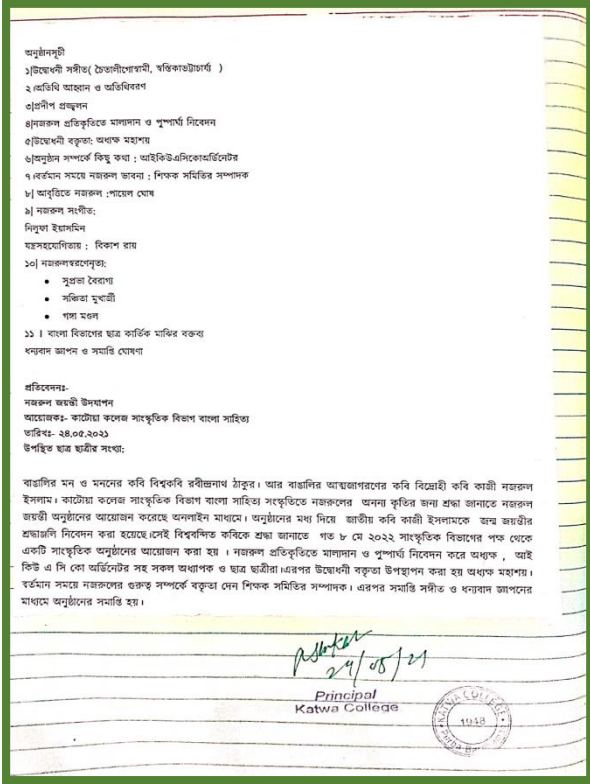 অনুষ্ঠানসূচী
১|উদ্বোধনী সঙ্গীত( চৈতালীগোস্বামী, স্বস্তিকাভট্টাচার্য্য )
২।অতিথি আহ্বান ও অতিথিবরণ
৩|প্রদীপ প্রজ্জ্বলন
৪|নজরুল প্রতিকৃতিতে মাল্যদান ও পুষ্পার্ঘ্য নিবেদন
৫|উদ্বোধনী বক্তৃতা: অধ্যক্ষ মহাশয়
৬|অনুষ্ঠান সম্পর্কে কিছু কথা : আইকিউএসিকোঅর্ডিনেটর
৭।বর্তমান সময়ে নজরুল ভাবনা : শিক্ষক সমিতির সম্পাদক
৮| আবৃত্তিতে নজরুল :পায়েল ঘোষ
৯| নজরুল সংগীত:
নিলুফা ইয়াসমিন
যন্ত্রসহযোগিতায় : বিকাশ রায়
১০| নজরুলস্মরণেনৃত্য:
• সুপ্রভা বৈরাগ্য
• সঞ্চিতা মুখার্জী
• গঙ্গা মণ্ডল
১১ । বাংলা বিভাগের ছাত্র কার্তিক মাঝির বক্তব্য
ধন্যবাদ জ্ঞাপন ও সমাপ্তি ঘোষণা
প্রতিবেদনঃ-
নজরুল জয়ন্তী উদযাপন
আয়োজকঃ- কাটোয়া কলেজ সাংস্কৃতিক বিভাগ বাংলা সাহিত্য
তারিখঃ- ২৪.০৫.২০২১
উপস্থিত ছাত্র ছাত্রীর সংখ্যা:
বাঙালির মন ও মননের কবি বিশ্বকবি রবীন্দ্রনাথ ঠাকুর। আর বাঙালির আত্মজাগরণের কবি বিদ্রোহী কবি কাজী নজরুল
ইসলাম। কাটোয়া কলেজ সাংস্কৃতিক বিভাগ বাংলা সাহিত্য সংস্কৃতিতে নজরুলের অনন্য কৃতির জন্য শ্রদ্ধা জানাতে নজরুল
জয়ন্তী অনুষ্ঠানের আয়োজন করেছে অনলাইন মাধ্যমে। অনুষ্ঠানের মধ্য দিয়ে জাতীয় কবি কাজী ইসলামকে জন্ম জয়ন্তীর
শ্রদ্ধাঞ্জলি নিবেদন করা হয়েছে।সেই বিশ্ববন্দিত কবিকে শ্রদ্ধা জানাতে গত ৮ মে ২০২২ সাংস্কৃতিক বিভাগের পক্ষ থেকে
একটি সাংস্কৃতিক অনুষ্ঠানের আয়োজন করা হয় । নজরুল প্রতিকৃতিতে মাল্যদান ও পুষ্পার্ঘ্য নিবেদন করে অধ্যক্ষ , আই
কিউ এ সি কো অর্ডিনেটর সহ সকল অধ্যাপক ও ছাত্র ছাত্রীরা।এরপর উদ্বোধনী বক্তৃতা উপস্থাপন করা হয় অধ্যক্ষ মহাশয়।
বর্তমান সময়ে নজরুলের গুরুত্ব সম্পর্কে বক্তৃতা দেন শিক্ষক সমিতির সম্পাদক। এরপর সমাপ্তি সঙ্গীত ও ধন্যবাদ জ্ঞাপনের
মাধ্যমে অনুষ্ঠানের সমাপ্তি হয়।
24/05/21
Principal
Katwa College
KATWA COLLEGE
1948